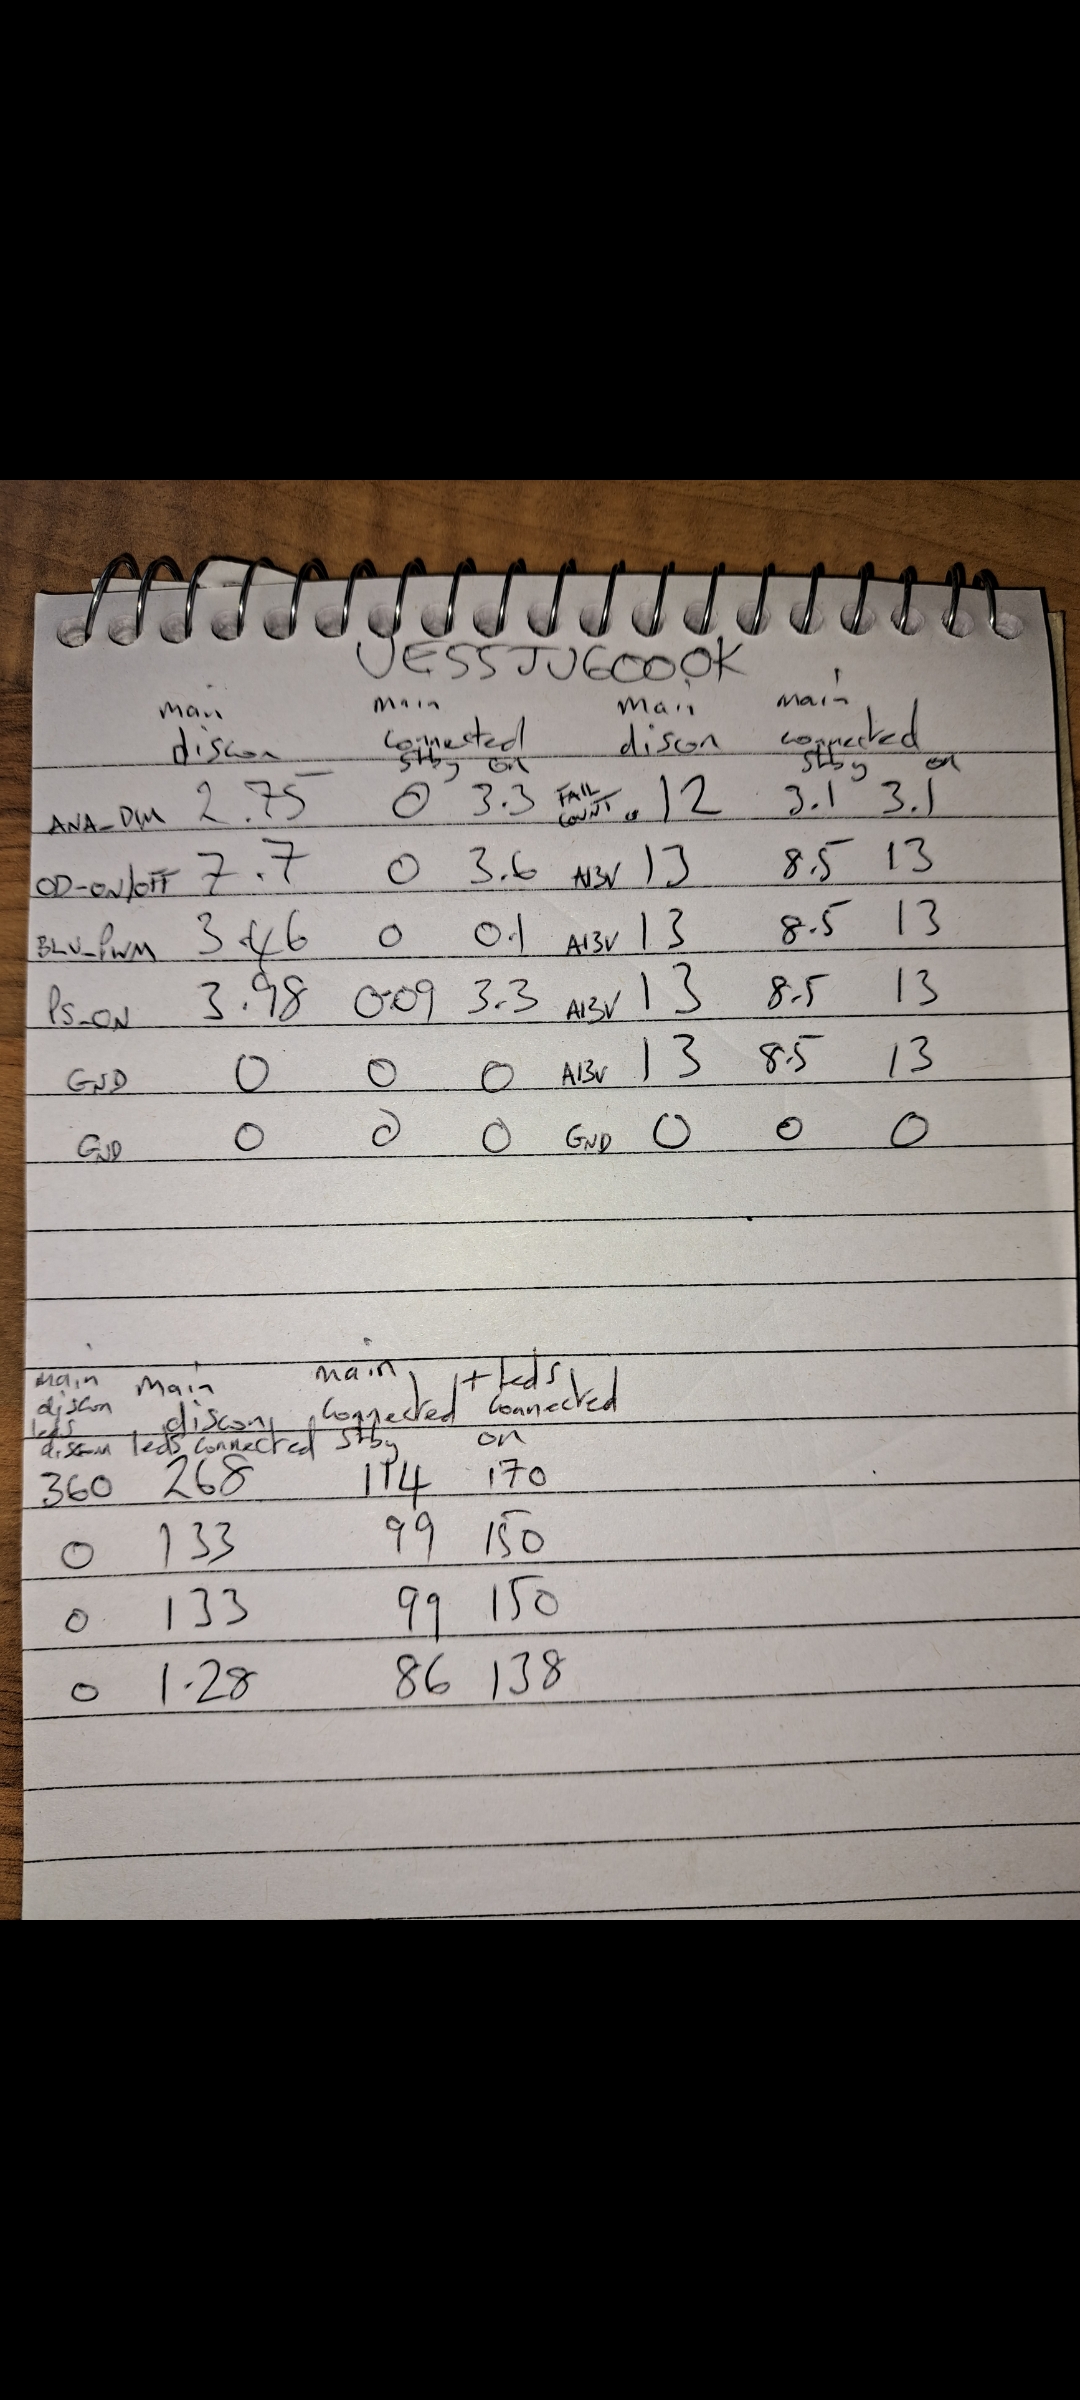 UE55JU6000K
main main main main
discon connected discon connected
stby on stby on
ANA_DIM 2.75 0 3.3 FAIL COUNT 12 3.1 3.1
OD-ON/OFF 7.7 0 3.6 A13V 13 8.5 13
BLU_PWM 3.46 0 0.1 A13V 13 8.5 13
PS_ON 3.98 0.09 3.3 A13V 13 8.5 13
GND 0 0 0 A13V 13 8.5 13
GND 0 0 0 GND 0 0 0
main main main + leds
discon discon connected connected
leds
discon leds connected stby on
360 268 114 170
0 133 99 150
0 133 99 150
0 1.28 86 138